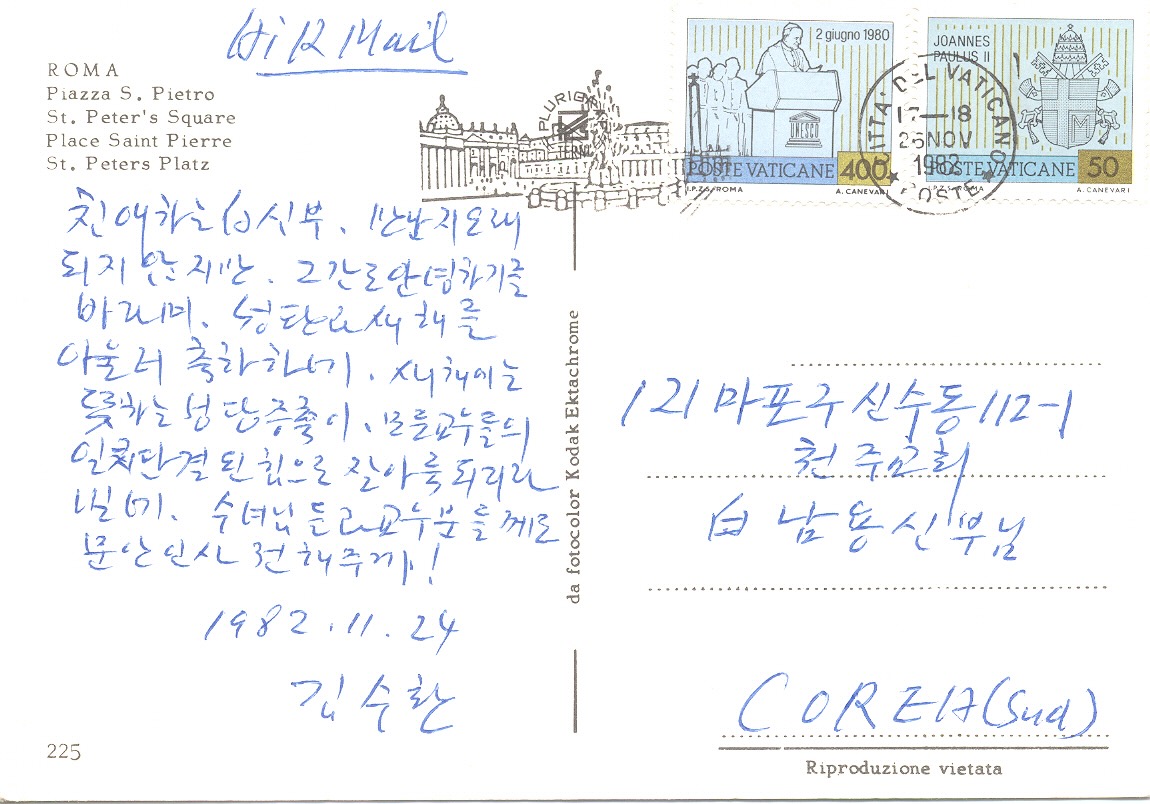 AiR Mail
ROMA
Piazza S. Pietro
St. Peter's Square
Place Saint Pierre
St. Peters Platz
친애하는 白신부. 만난지 오래
되지 않지만. 그간도 안녕하기를
바라며. 성탄과 새해를
아울러 축하하네. 새해에는
뜻하는 성당증축이. 모든 교우들의
일치단결된 힘으로 잘 이룩되리라
빌네. 수녀님들과 교우분들께도
문안인사 전해주게!
1982.11.24
김수환
225
da fotocolor Kodak Ektachrome
2 giugno 1980
UNESCO
POSTE VATICANE 400
I.P.Z.S. ROMA A. CANEVARI
JOANNES
PAULUS II
POSTE VATICANE 50
I.P.Z.S. ROMA A. CANEVARI
CITTA' DEL VATICANO
17-18
26 NOV
1982
POSTE
121 마포구 신수동 112-1
천주교회
白 남용 신부님
COREA (Sud)
Riproduzione vietata